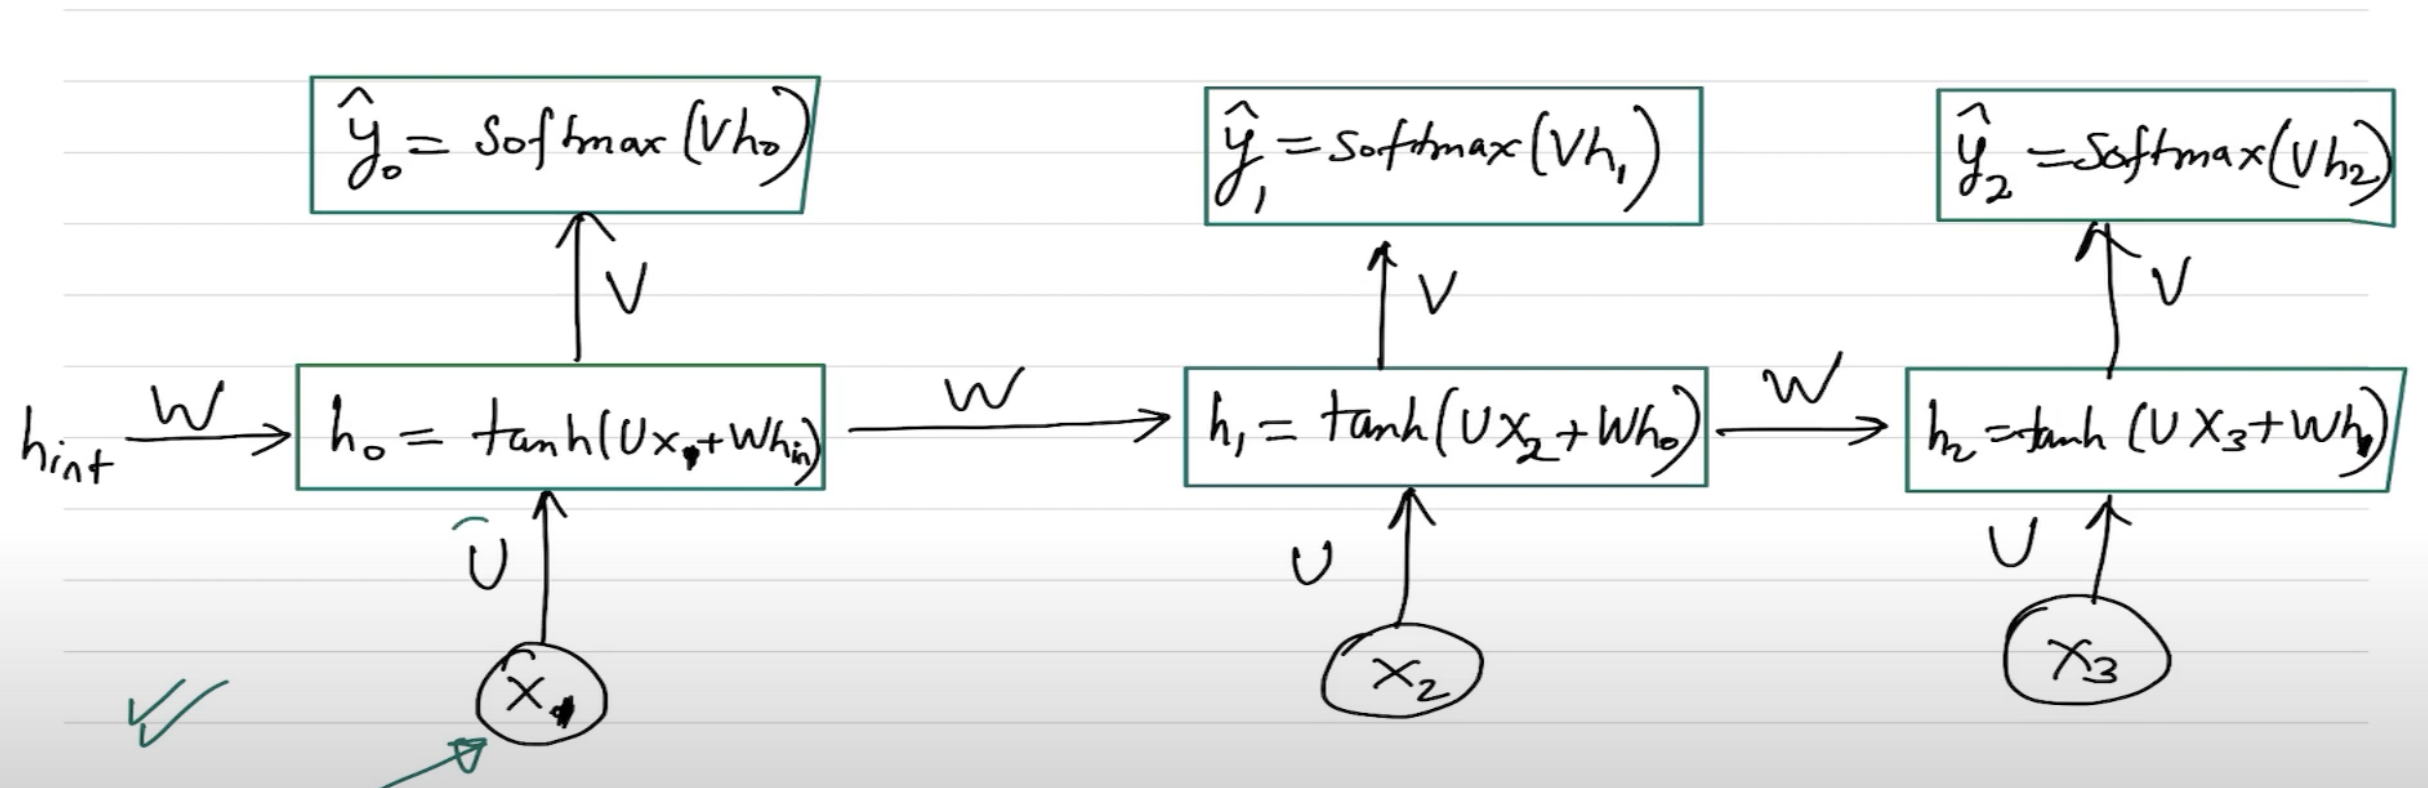 ŷ₀ = Softmax (Vh₀)
ŷ₁ = Softmax (Vh₁)
ŷ₂ = Softmax (Vh₂)
V
V
V
h_int
W
h₀ = tanh(Ux₁+Wh_in)
W
h₁ = tanh(UX₂+Wh₀)
W
h₂ = tanh (UX₃+Wh₁)
U
U
U
X₁
X₂
X₃